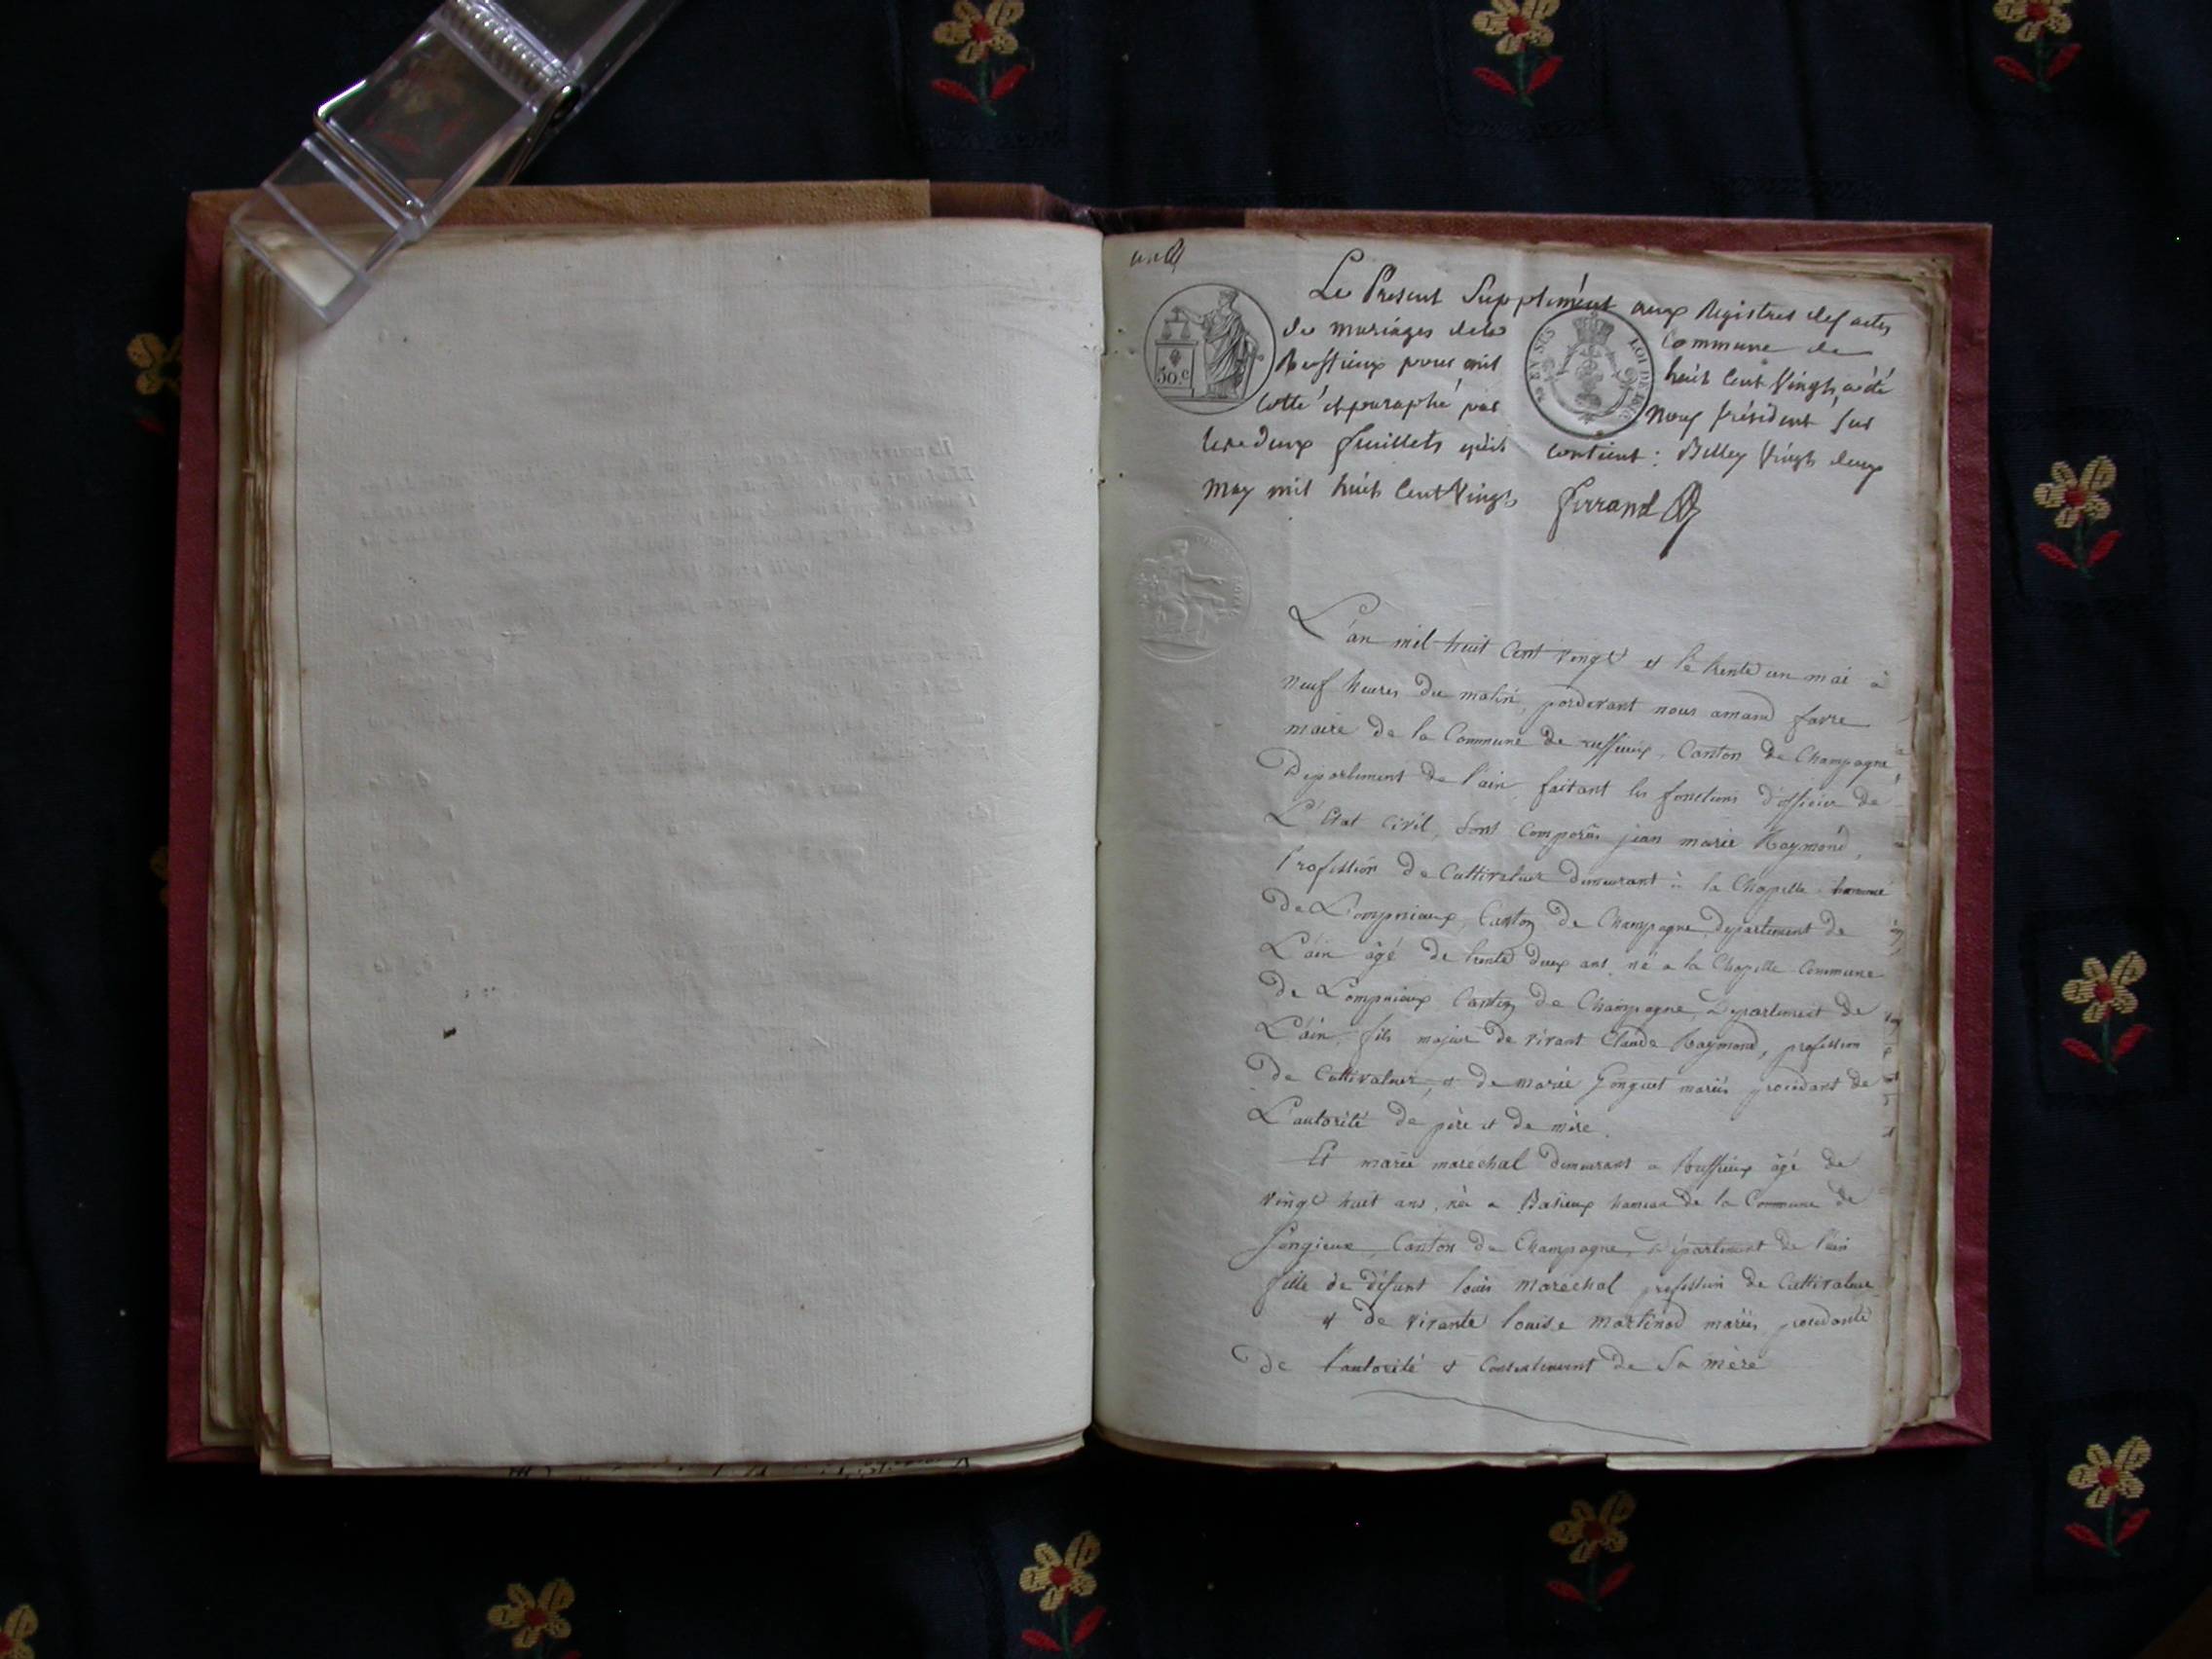 Le Présent Supplément aux Registres des actes
de mariages de la Commune de
Ruffieux pour mil huit cent Vingt, a été
cotté et paraphé par Nous Président Sur
les deux feuillets qu'il contient : Belley Vingt deux
may mil huit Cent Vingt Ferrand
50.c
EN SUS LOI DE
L'an mil huit Cent vingt et le trente un mai à
neuf heures du matin, pardevant nous amand favre
maire de la Commune de ruffieux, Canton de Champagne,
Département de l'ain, faisant les fonctions d'officier de
L'Etat civil, sont comparûs jean marie Raymond,
Profession de Cultivateur demeurant à la Chapelle
de Lompnieux, Canton de Champagne, département de
L'ain âgé de trente deux ans né a la Chapelle Commune
de Lompnieux Canton de Champagne, Département de
L'ain, fils majeur de vivant Claude Raymond, profession
de Cultivateur, et de marie Gonguet mariés procédant de
L'autorité de père et de mère.
Et marie maréchal demeurant a Ruffieux âgé de
vingt huit ans, née a Basieux hameau de la Commune de
Songieux, Canton de Champagne, Département de l'ain
fille de défunt louis maréchal profession de Cultivateur
et de vivante louise martinod mariés, procédante
de l'autorité et Consentement de Sa mère